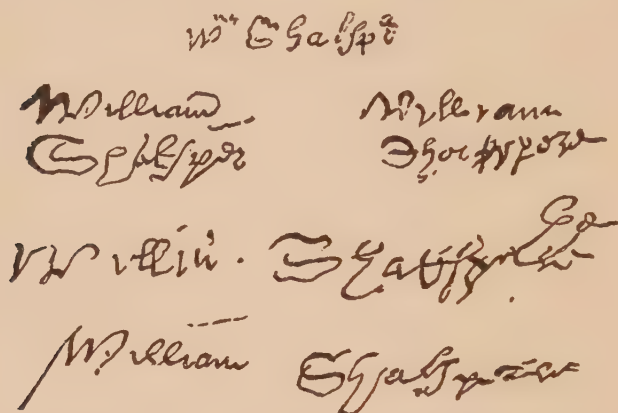 Wm Shakspē
William
Shakspēr
William
Shakspere
Willm Shakspere
William Shakspeare